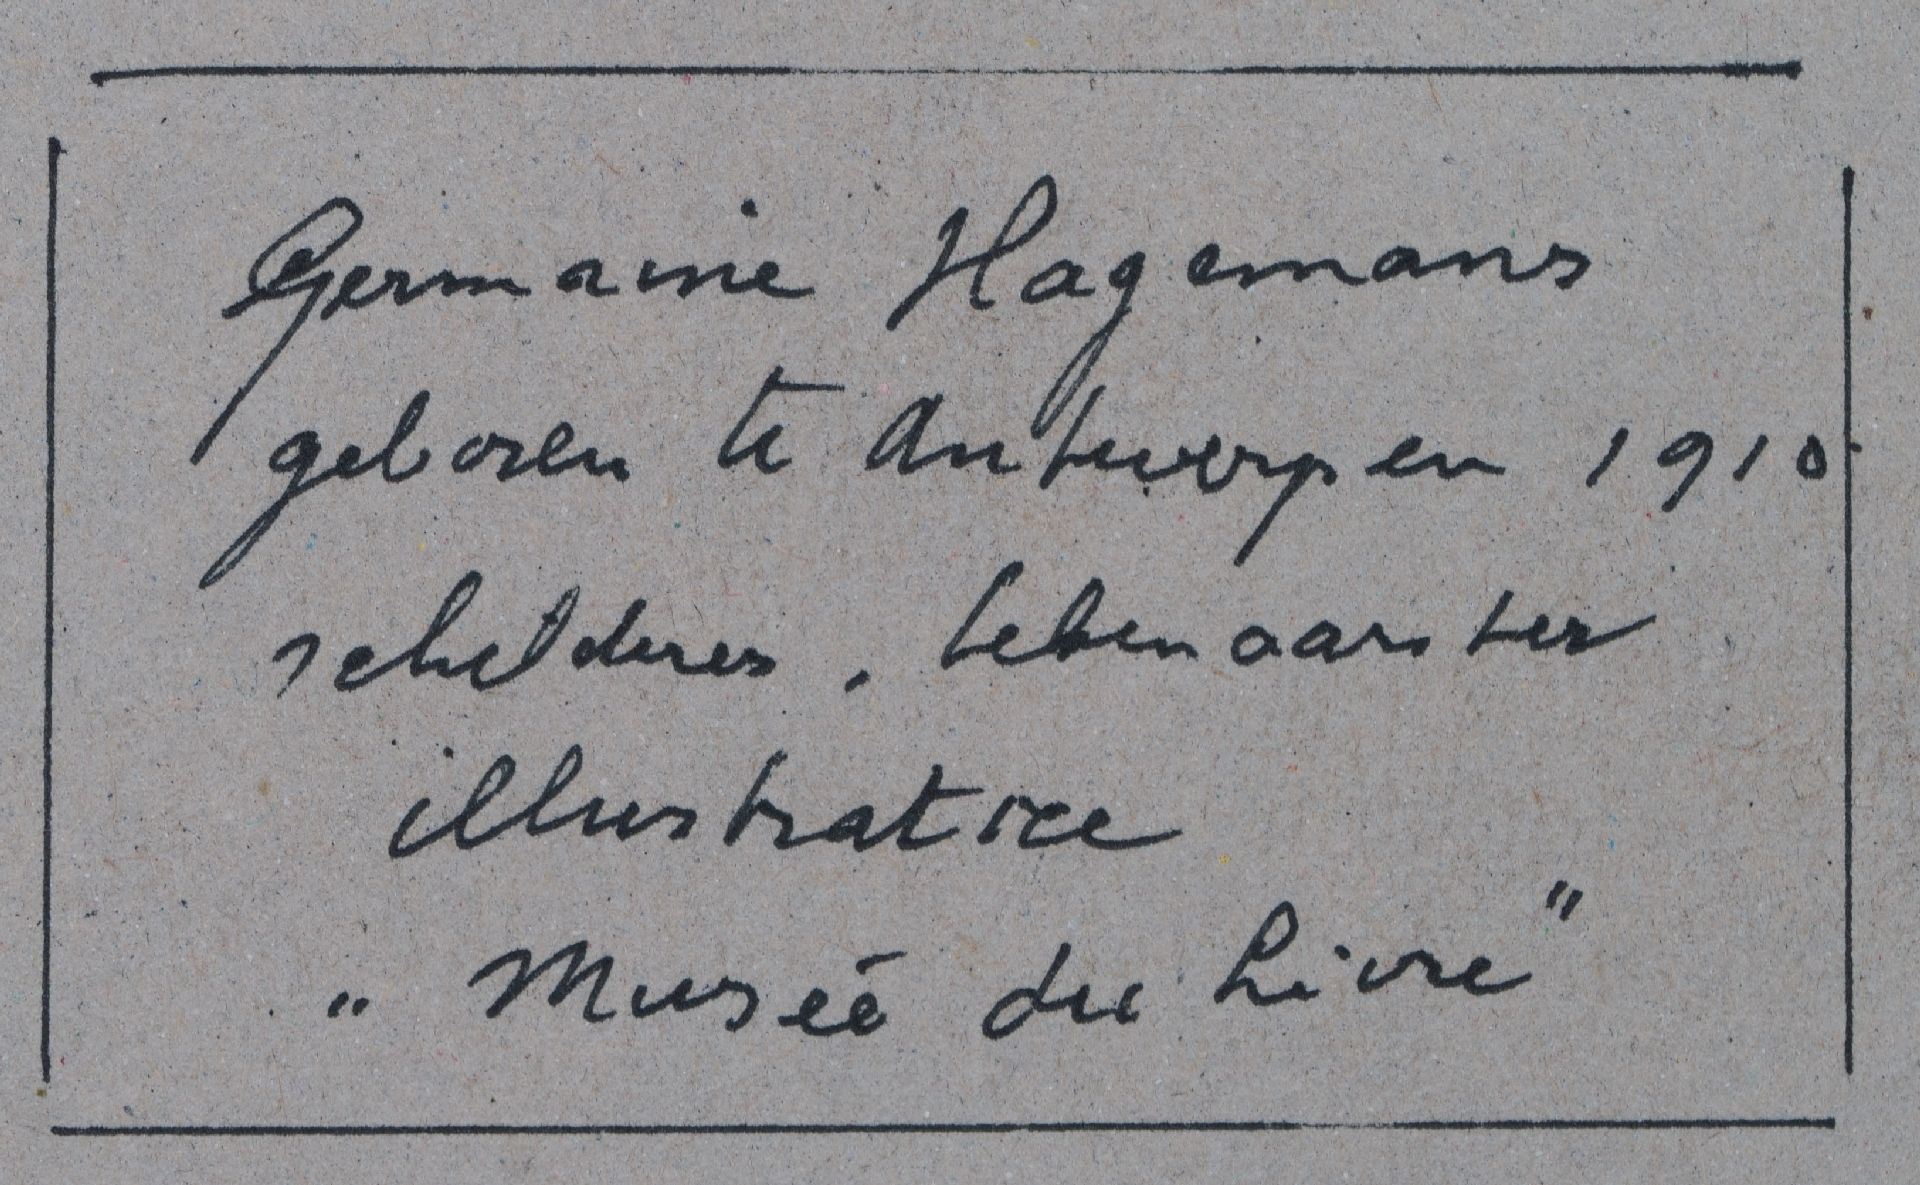 Germaine Hagemans
geboren te Antwerpen 1910
schilderes, tekenaarster
illustratrice
"Musée du Livre"